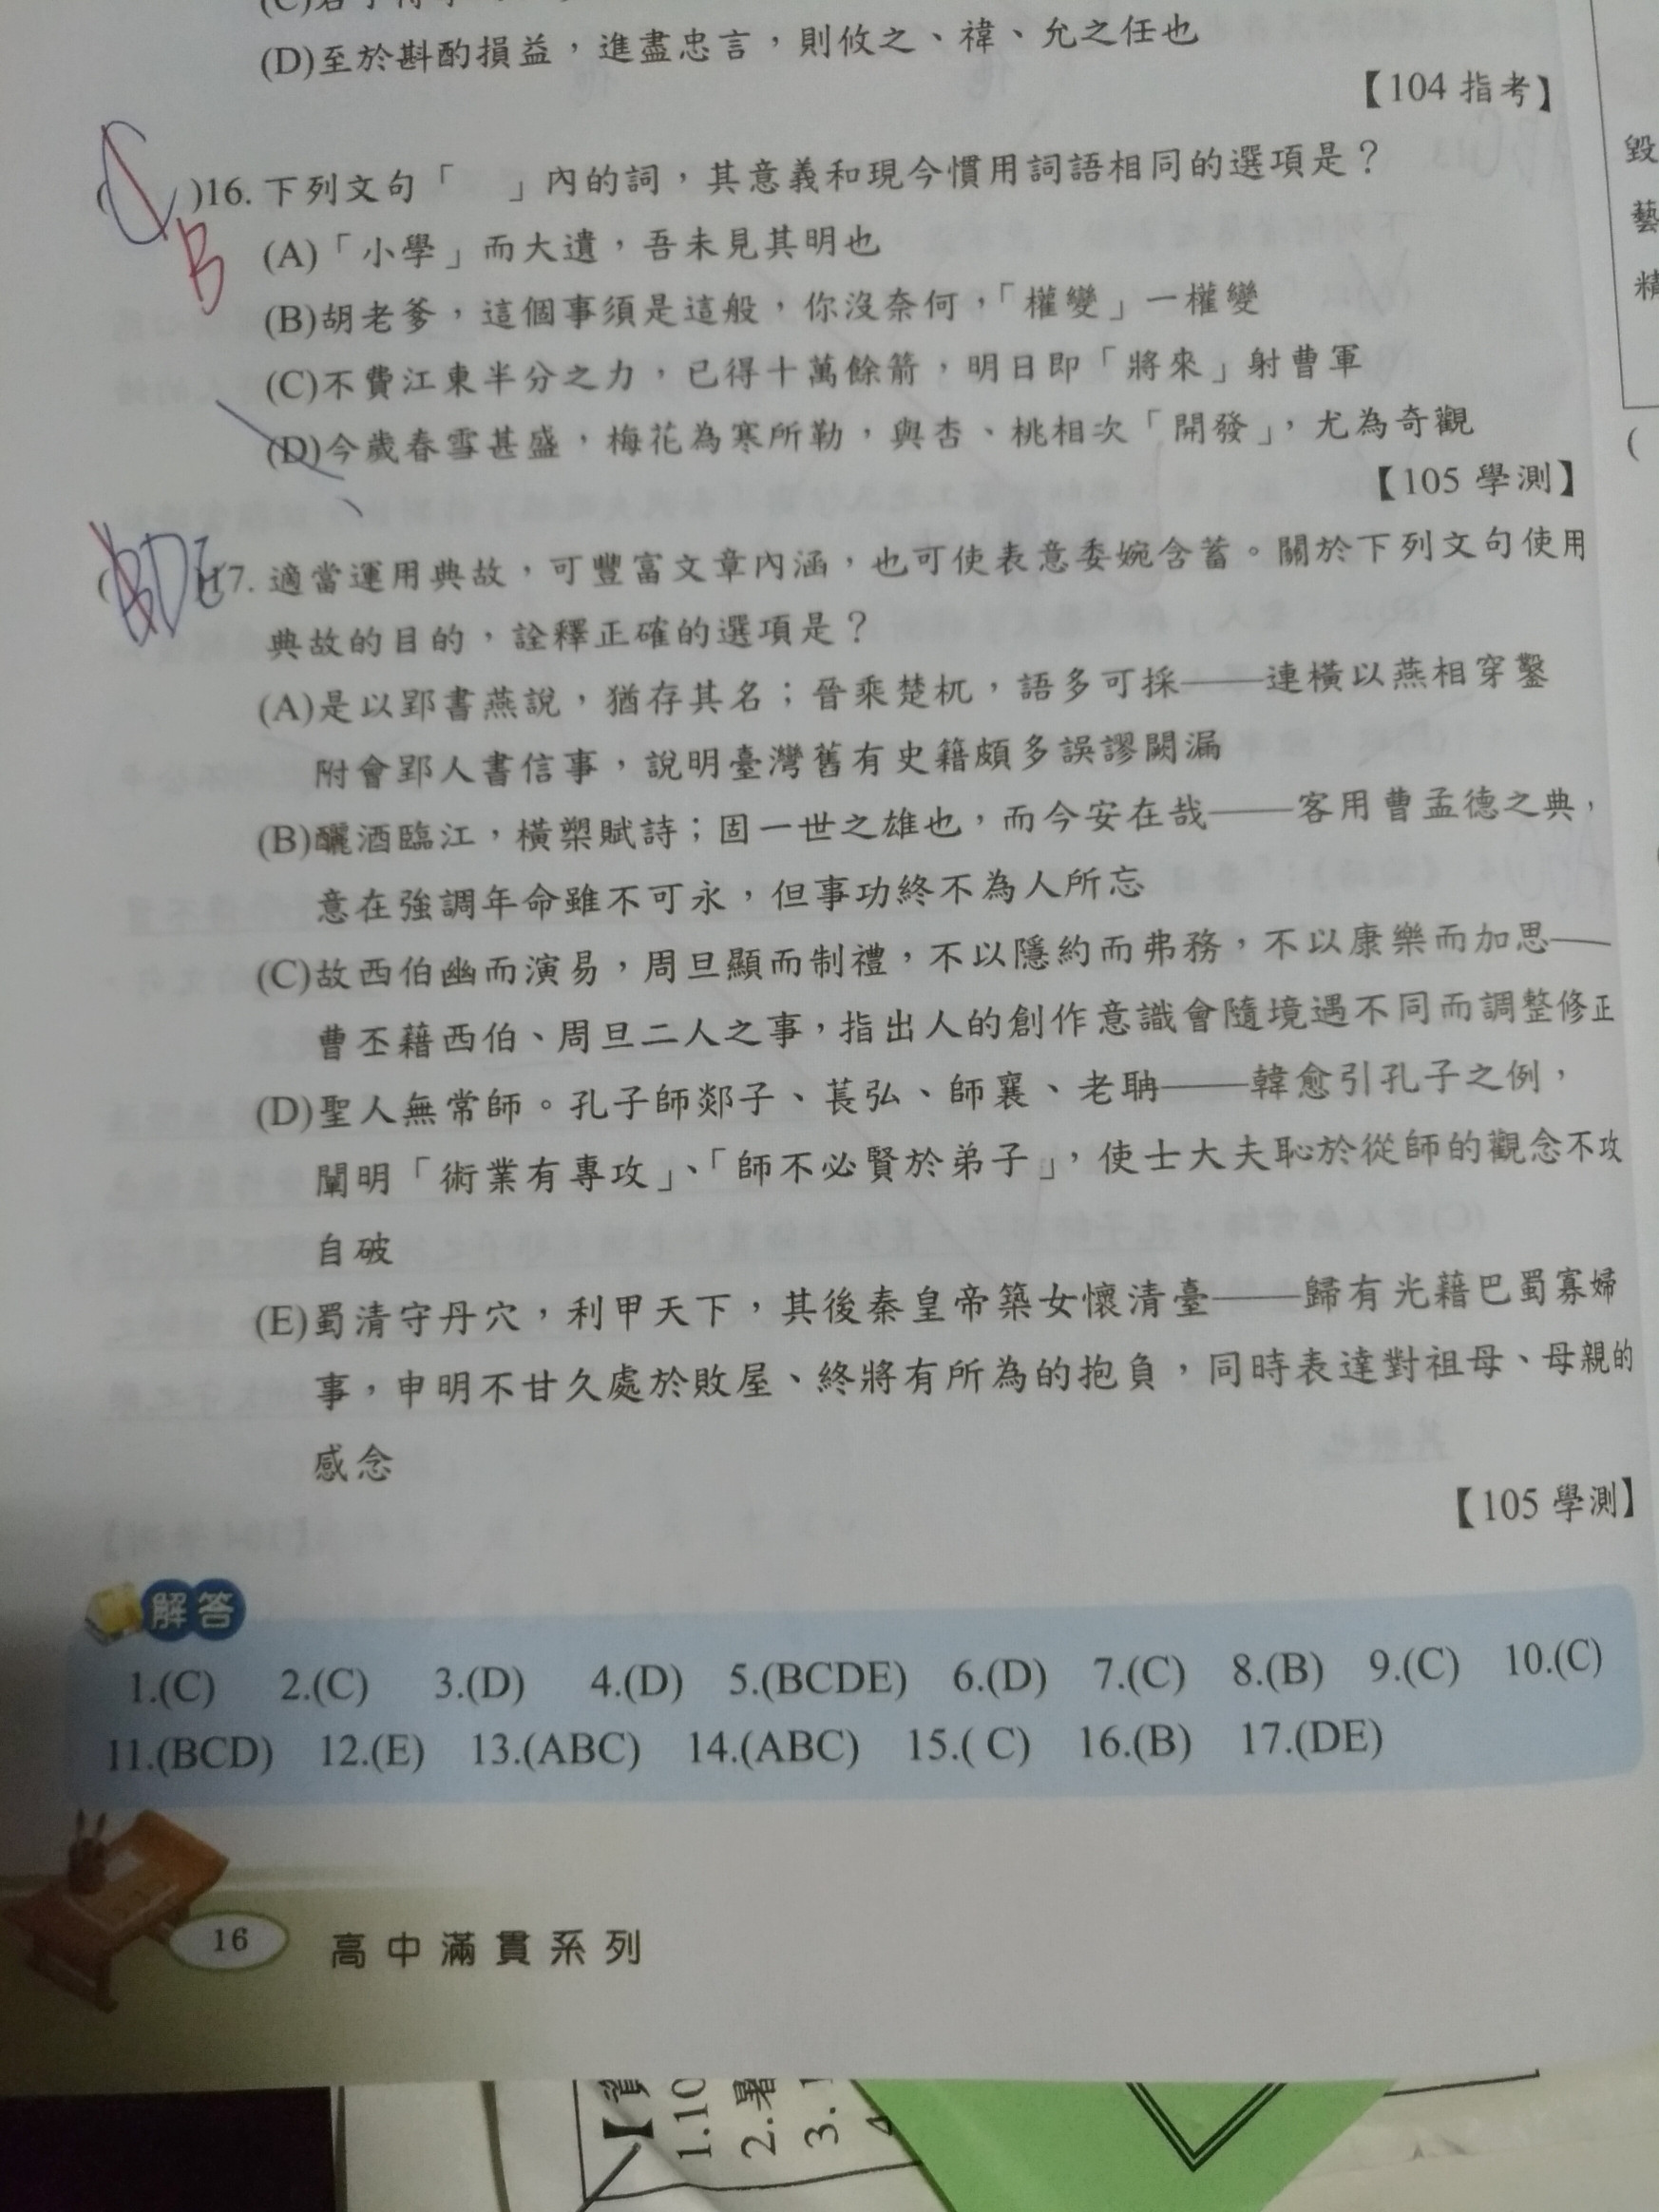 (D)至於斟酌損益，進盡忠言，則攸之、禕、允之任也
【104 指考】
C
B
)16. 下列文句「　」內的詞，其意義和現今慣用詞語相同的選項是？
(A)「小學」而大遺，吾未見其明也
(B)胡老爹，這個事須是這般，你沒奈何，「權變」一權變
(C)不費江東半分之力，已得十萬餘箭，明日即「將來」射曹軍
(D)今歲春雪甚盛，梅花為寒所勒，與杏、桃相次「開發」，尤為奇觀
【105 學測】
(BDE)17. 適當運用典故，可豐富文章內涵，也可使表意委婉含蓄。關於下列文句使用
典故的目的，詮釋正確的選項是？
(A)是以郢書燕說，猶存其名；晉乘楚杌，語多可採——連橫以燕相穿鑿
附會郢人書信事，說明臺灣舊有史籍頗多誤謬闕漏
(B)釃酒臨江，橫槊賦詩；固一世之雄也，而今安在哉——客用曹孟德之典，
意在強調年命雖不可永，但事功終不為人所忘
(C)故西伯幽而演易，周旦顯而制禮，不以隱約而弗務，不以康樂而加思——
曹丕藉西伯、周旦二人之事，指出人的創作意識會隨境遇不同而調整修正
(D)聖人無常師。孔子師郯子、萇弘、師襄、老聃——韓愈引孔子之例，
闡明「術業有專攻」、「師不必賢於弟子」，使士大夫恥於從師的觀念不攻
自破
(E)蜀清守丹穴，利甲天下，其後秦皇帝築女懷清臺——歸有光藉巴蜀寡婦
事，申明不甘久處於敗屋、終將有所為的抱負，同時表達對祖母、母親的
感念
【105 學測】
解答
1.(C) 2.(C) 3.(D) 4.(D) 5.(BCDE) 6.(D) 7.(C) 8.(B) 9.(C) 10.(C)
11.(BCD) 12.(E) 13.(ABC) 14.(ABC) 15.( C) 16.(B) 17.(DE)
16 高中滿貫系列
毀
藝
精
(
1.10
2.暑
3.1